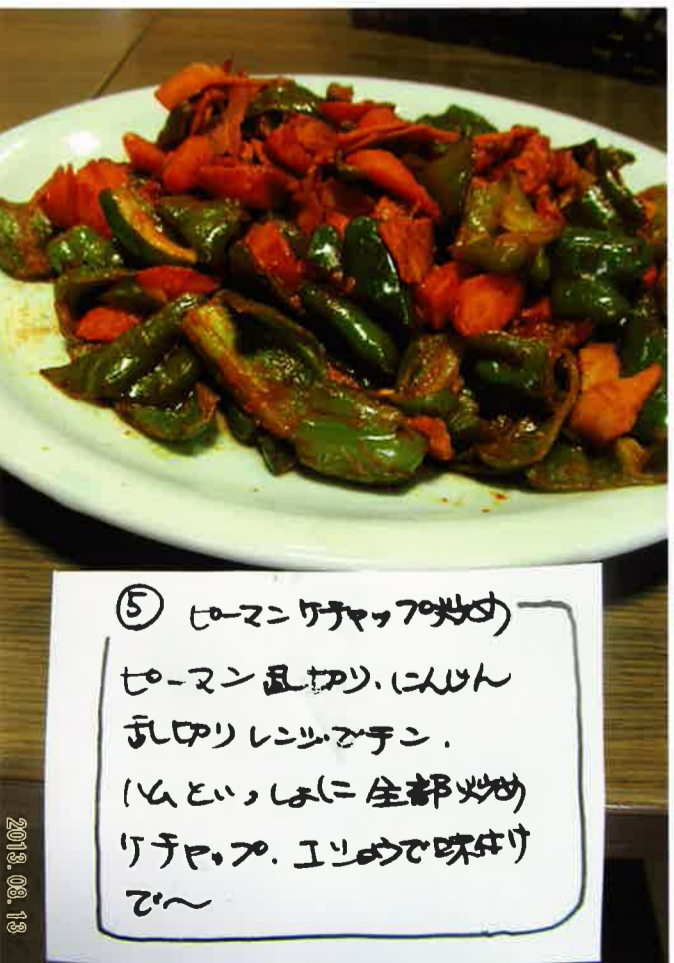 ⑤ ピーマンケチャップ炒め
ピーマン乱切り、にんじん
乱切りレンジでチン.
ハムといっしょに全部炒め
ケチャップ、こしょうで味付け
で〜
2013.08.13